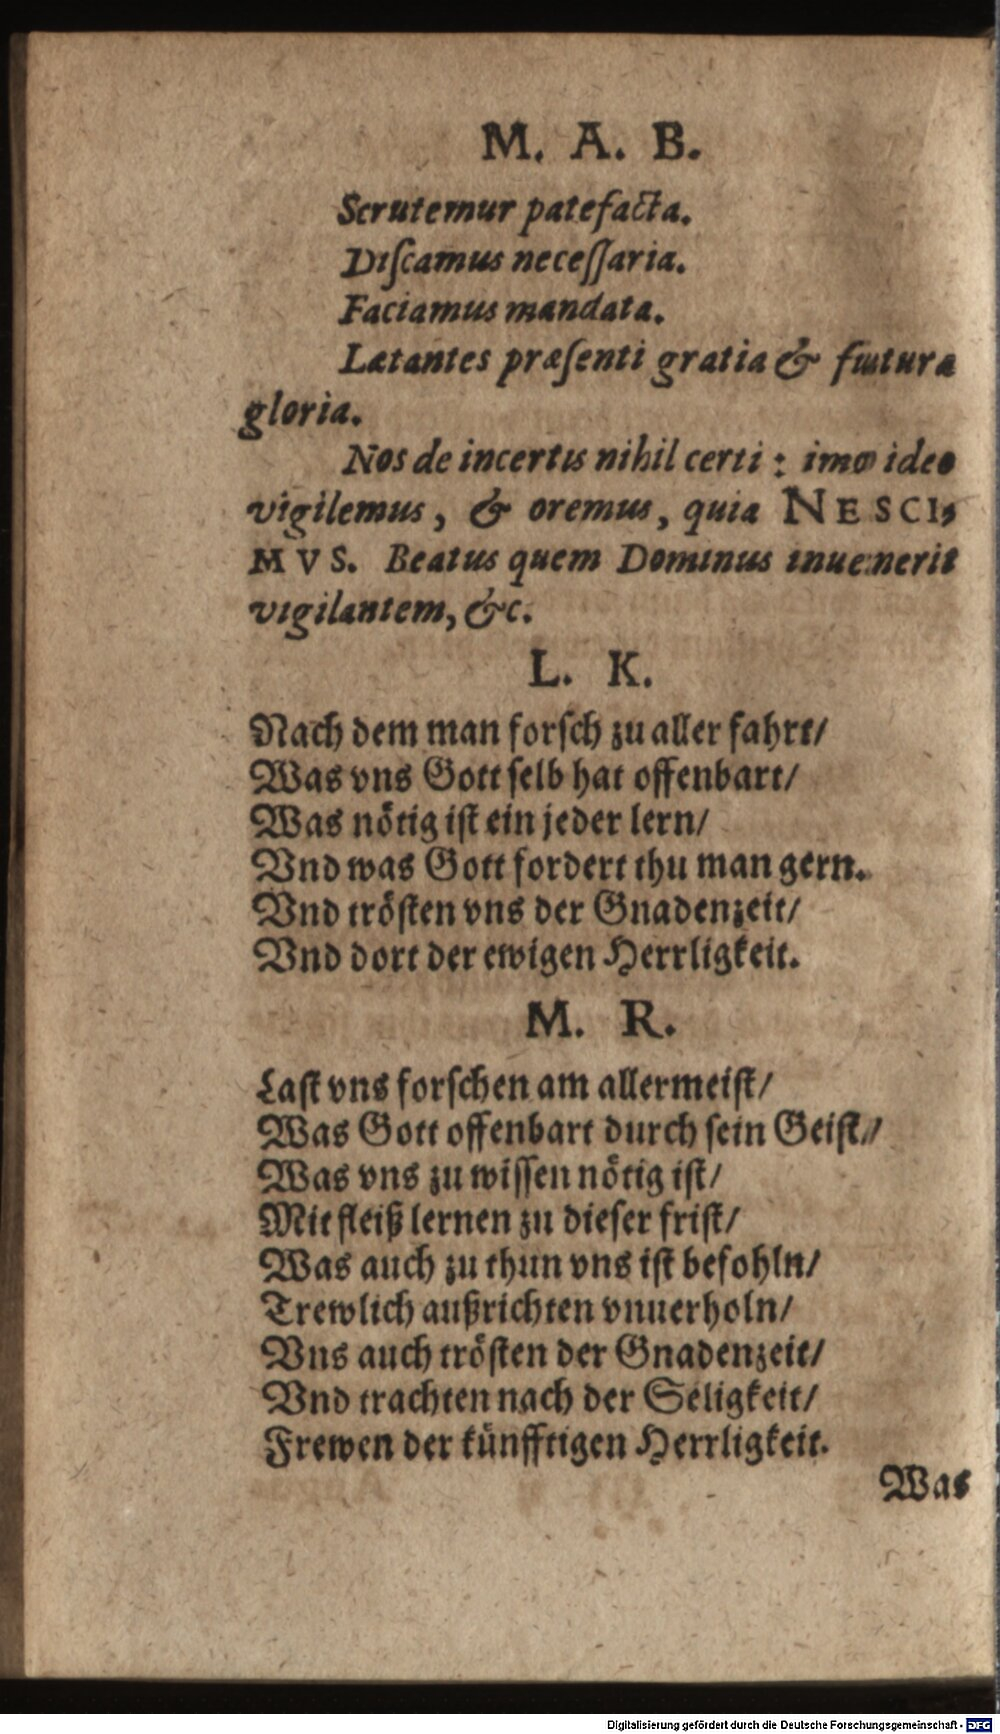 M. A. B.
Scrutemur patefacta.
Diſcamus neceſſaria.
Faciamus mandata.
Lætantes præſenti gratia & futura
gloria.
Nos de incertis nihil certi: imo ideo
vigilemus, & oremus, quia NESCI-
MVS. Beatus quem Dominus inuenerit
vigilantem, &c.
L. K.
Nach dem man forſch zu aller fahrt/
Was vns Gott ſelb hat offenbart/
Was nötig iſt ein jeder lern/
Vnd was Gott fordert thu man gern.
Vnd tröſten vns der Gnadenzeit/
Vnd dort der ewigen Herrligkeit.
M. R.
Laſt vns forſchen am allermeiſt/
Was Gott offenbart durch ſein Geiſt/
Was vns zu wiſſen nötig iſt/
Mit fleiß lernen zu dieſer friſt/
Was auch zu thun vns iſt befohln/
Trewlich außrichten vnuerholn/
Vns auch tröſten der Gnadenzeit/
Vnd trachten nach der Seligkeit/
Frewen der künfftigen Herrligkeit.
Was
Digitalisierung gefördert durch die Deutsche Forschungsgemeinschaft - DFG